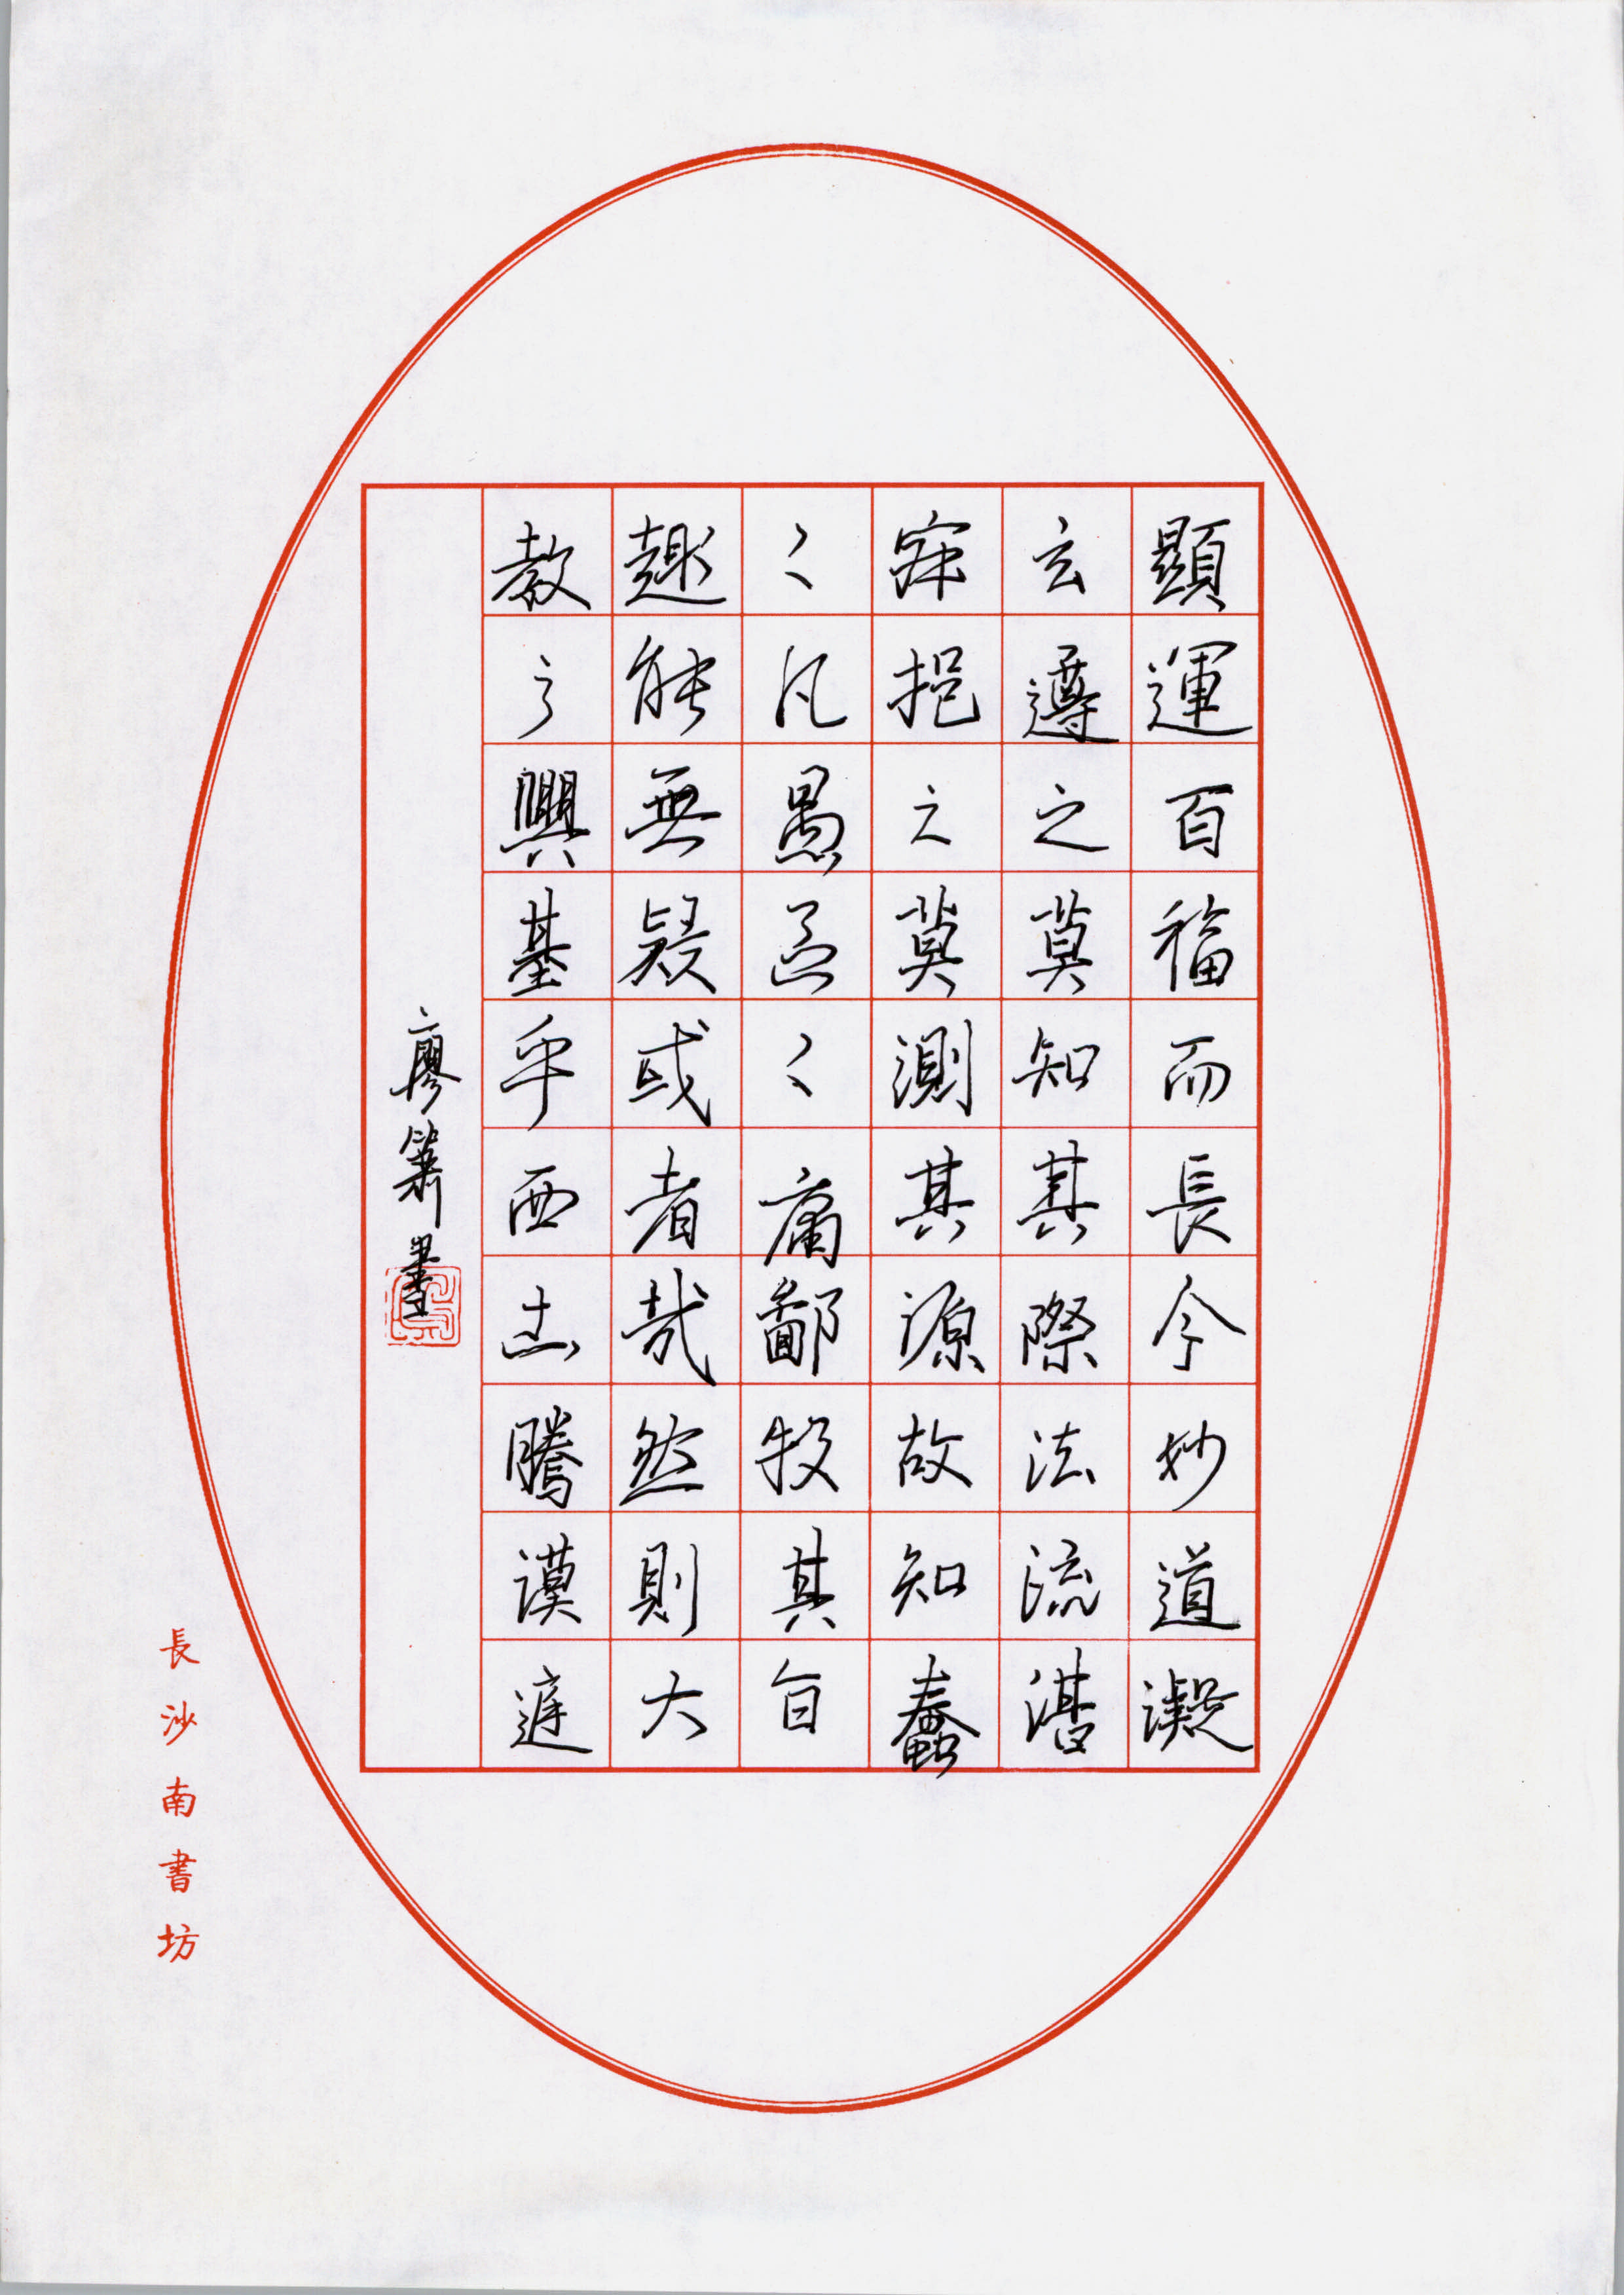 顯運百福而長今妙道凝
玄遵之莫知其際法流湛
寂挹之莫測其源故知蠢
〻凡愚區〻庸鄙投其旨
趣能無疑或者哉然則大
教之興基乎西土騰漢庭
廖書
長沙南書坊